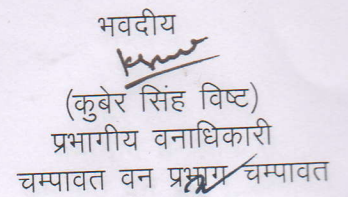 भवदीय
(कुबेर सिंह विष्ट)
प्रभागीय वनाधिकारी
चम्पावत वन प्रभाग चम्पावत